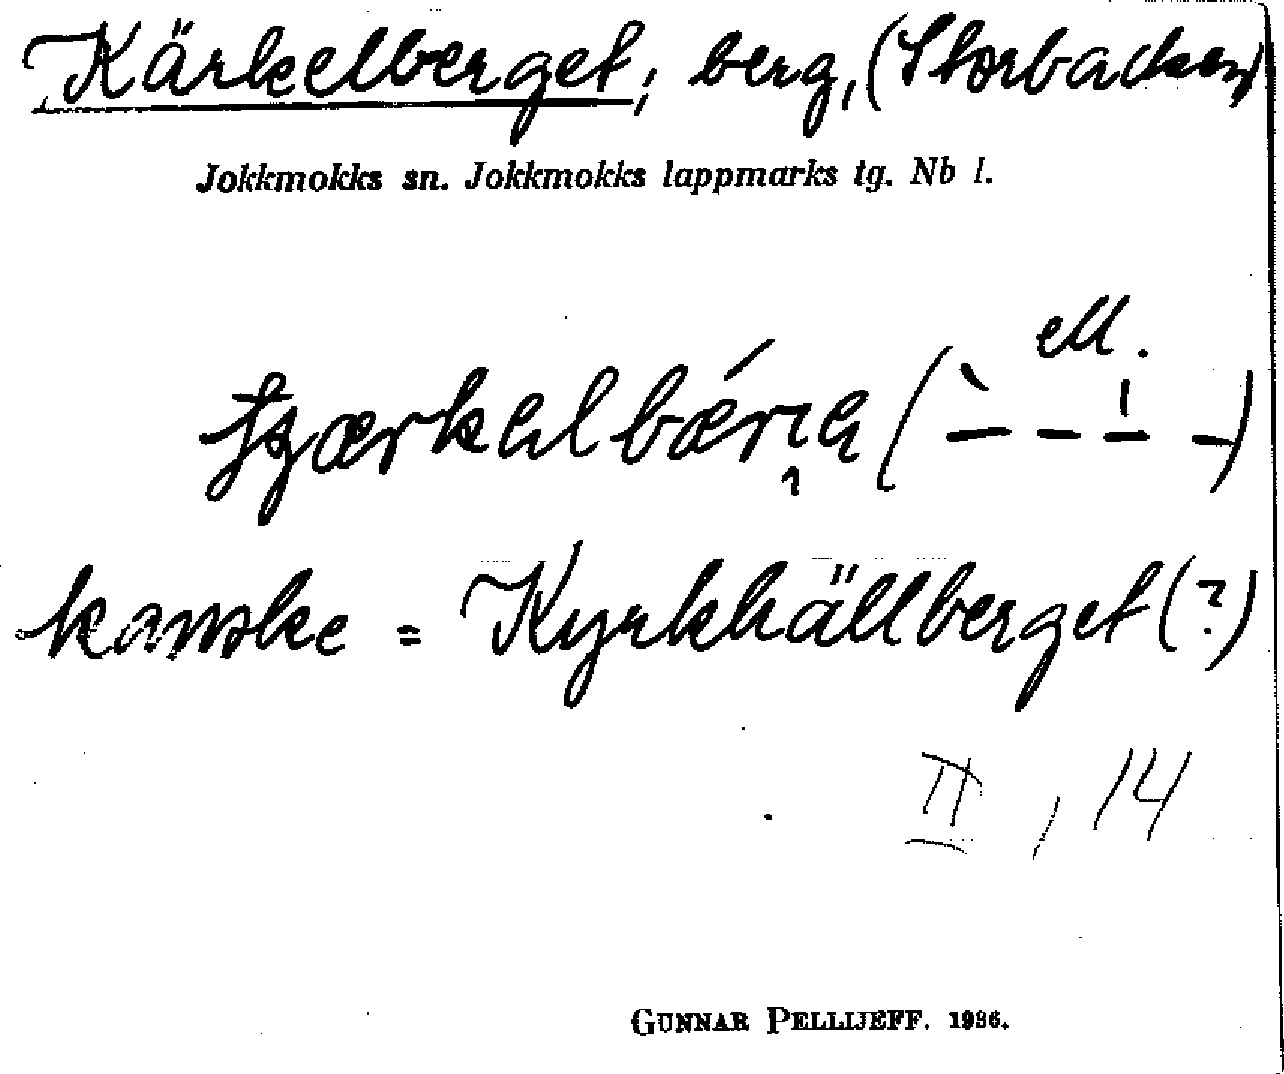 Kärkelberget; berg, (Storbacken)
Jokkmokks sn. Jokkmokks lappmarks tg. Nb l.
ell.
kanske = Kyrkhällberget (?)
II, 14
GUNNAR PELLIJEFF. 1936.